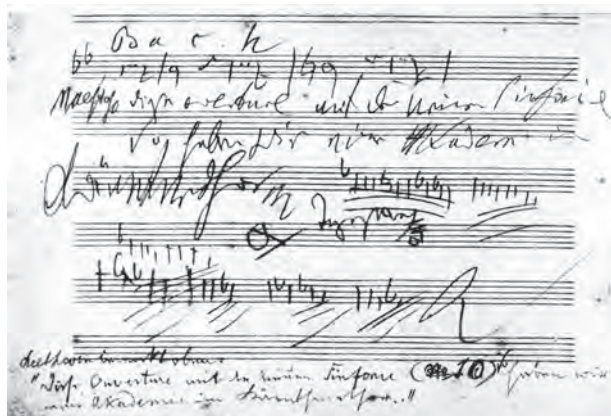 Bach
diese ouverture mit der neuen Sinfonie
So haben wir eine Akademie im
Kärnthnerthor
Beethoven bemerkt oben:
"Diese Ouverture mit der neuen Sinfonie ( 10) haben wir
eine Akademie im Kärnthnerthor.."